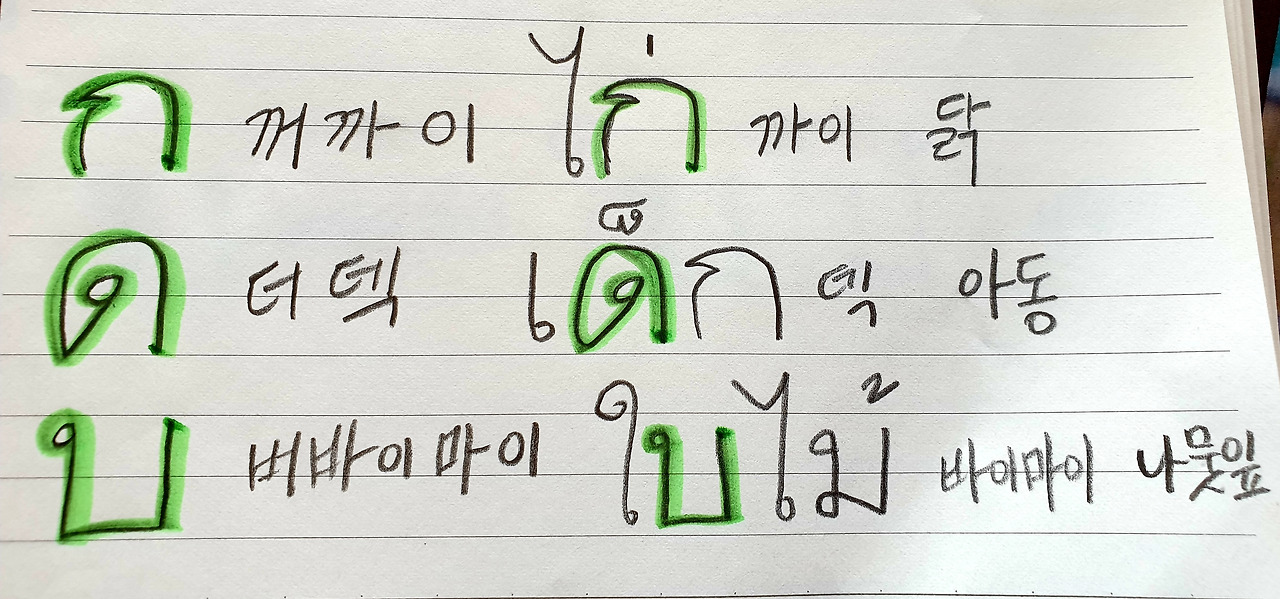 ก 꺼까이 ไก่ 까이 닭
ด 더덱 เด็ก 덱 아동
บ 버바이마이 ใบไม้ 바이마이 나뭇잎